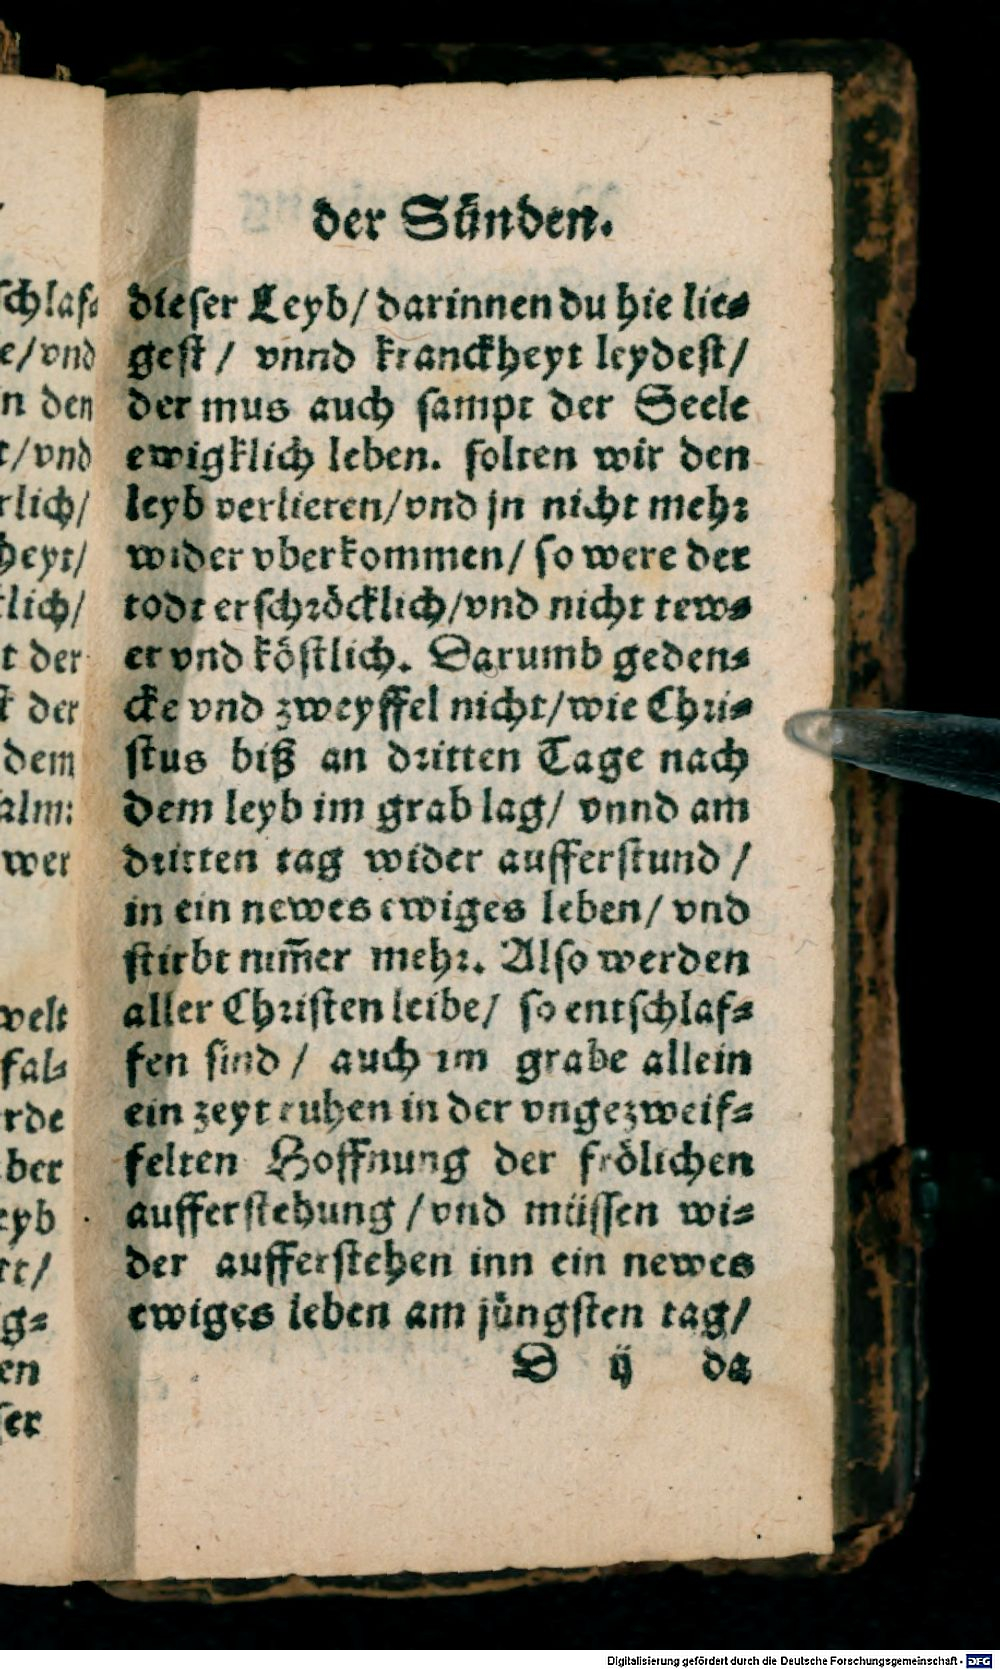 der Sünden.
schlaf⸗
e/vnd
n den
t/vnd
rlich/
heyt/
tlich/
t der
der
dem
alm:
wer
welt
fal⸗
rde
ber
eyb
tt/
g⸗
en
ser
dieser Leyb/ darinnen du hie lie⸗
gest/ vnnd kranckheyt leydest/
der mus auch sampt der Seele
ewigklich leben. solten wir den
leyb verlieren/vnd jn nicht mehr
wider vberkommen/ so were der
todt erschröcklich/vnd nicht tew⸗
er vnd köstlich. Darumb geden⸗
cke vnd zweyffel nicht/wie Chri⸗
stus biß an dritten Tage nach
dem leyb im grab lag/ vnnd am
dritten tag wider aufferstund /
in ein newes ewiges leben/ vnd
stirbt nim̃er mehr. Also werden
aller Christen leibe/ so entschlaf⸗
fen sind / auch im grabe allein
ein zeyt ruhen in der vngezweif⸗
felten Hoffnung der frölichen
aufferstehung /vnd müssen wi⸗
der aufferstehen inn ein newes
ewiges leben am jüngsten tag/
D ij da
Digitalisierung gefördert durch die Deutsche Forschungsgemeinschaft - DFG